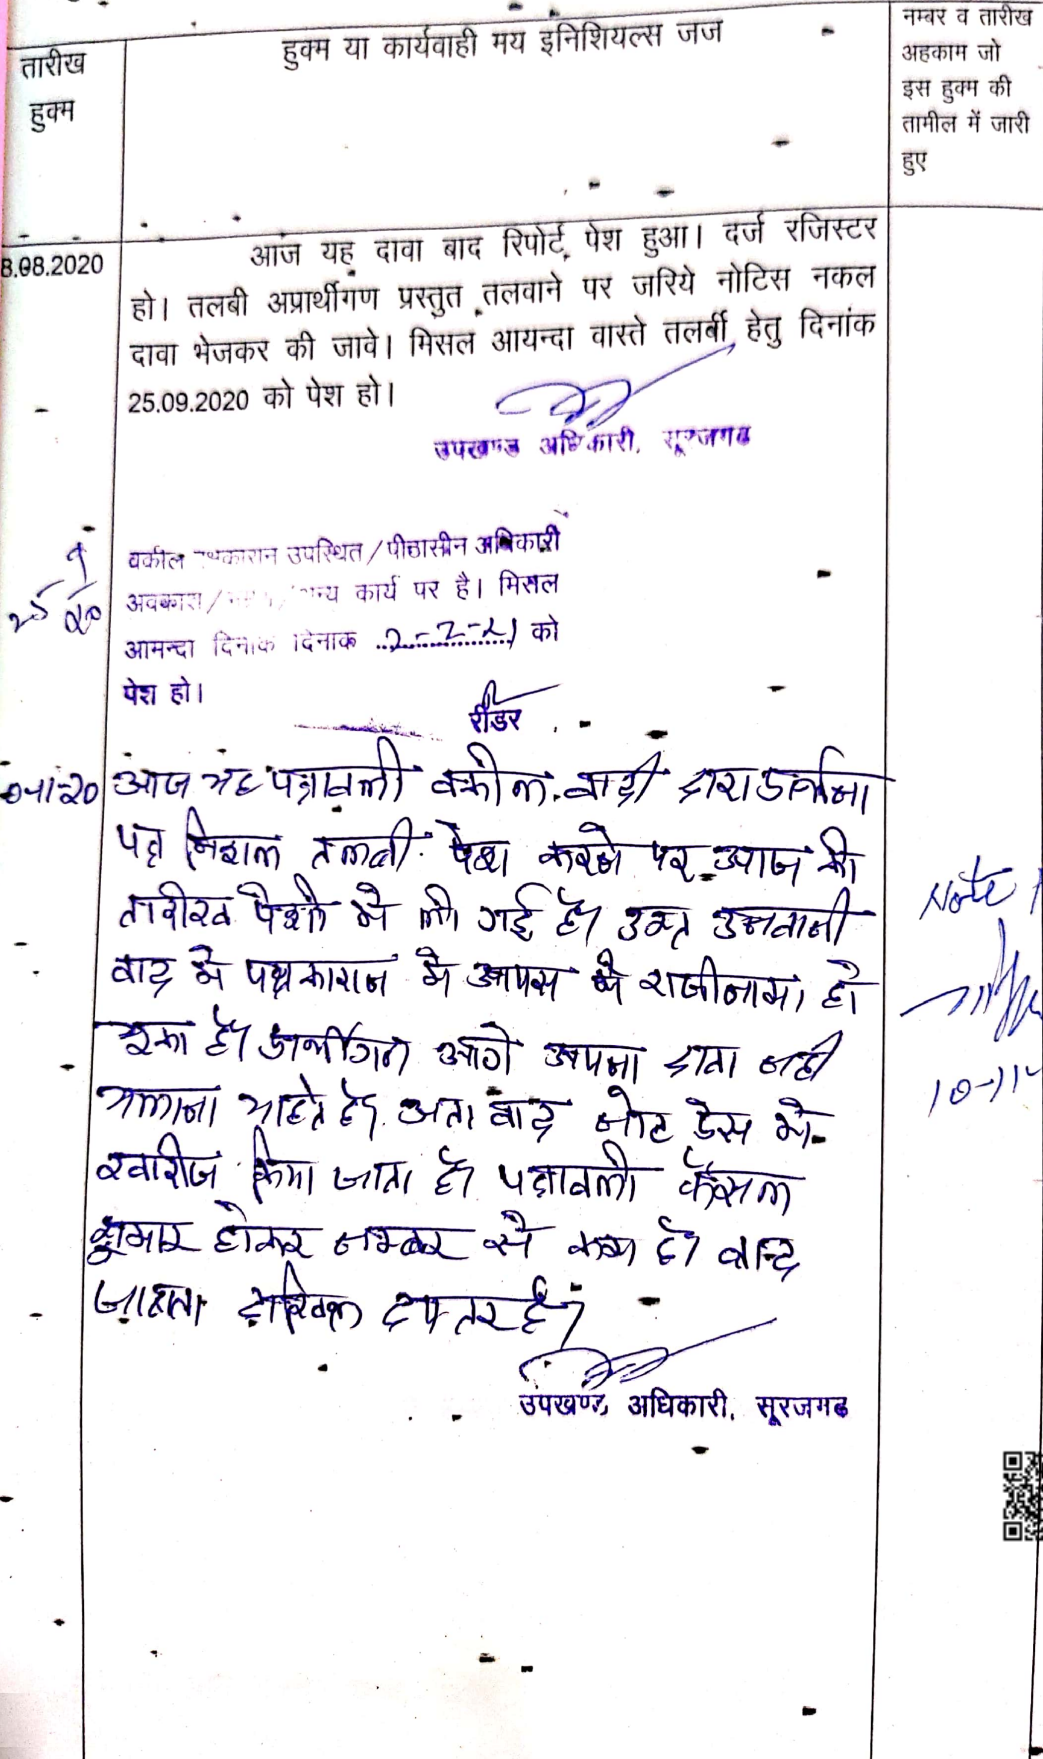 तारीख
हुक्म
हुक्म या कार्यवाही मय इनिशियल्स जज
नम्बर व तारीख
अहकाम जो
इस हुक्म की
तामील में जारी
हुए
8.08.2020
आज यह दावा बाद रिपोर्ट पेश हुआ। दर्ज रजिस्टर
हो। तलबी अप्रार्थीगण प्रस्तुत तलवाने पर जरिये नोटिस नकल
दावा भेजकर की जावे। मिसल आयन्दा वास्ते तलबी हेतु दिनांक
25.09.2020 को पेश हो।
उपखण्ड अधिकारी, सूरजगढ
25/9/20
वकील उपस्थित/पीठासीन अधिकारी
अवकाश/ कार्य पर है। मिसल
आमन्दा दिनांक दिनांक 2-2-21 को
पेश हो।
रीडर
आज यह पत्रावली वकील वादी द्वारा
पत्र मिशल तलबी पेश करने पर आज की
तारीख पेशी में ली गई है। उक्त उनवानी
वाद में पक्षकारान में आपस में राजीनामा हो
चुका है। आगे अपना दावा नही
चलाना चाहते है। अतः वाद नोट प्रेस में
खारीज किया जाता है। पत्रावली फैसल
शुमार होकर नम्बर से कम हो
जाब्ता दाखिल दफ्तर हो।
उपखण्ड अधिकारी, सूरजगढ
Note